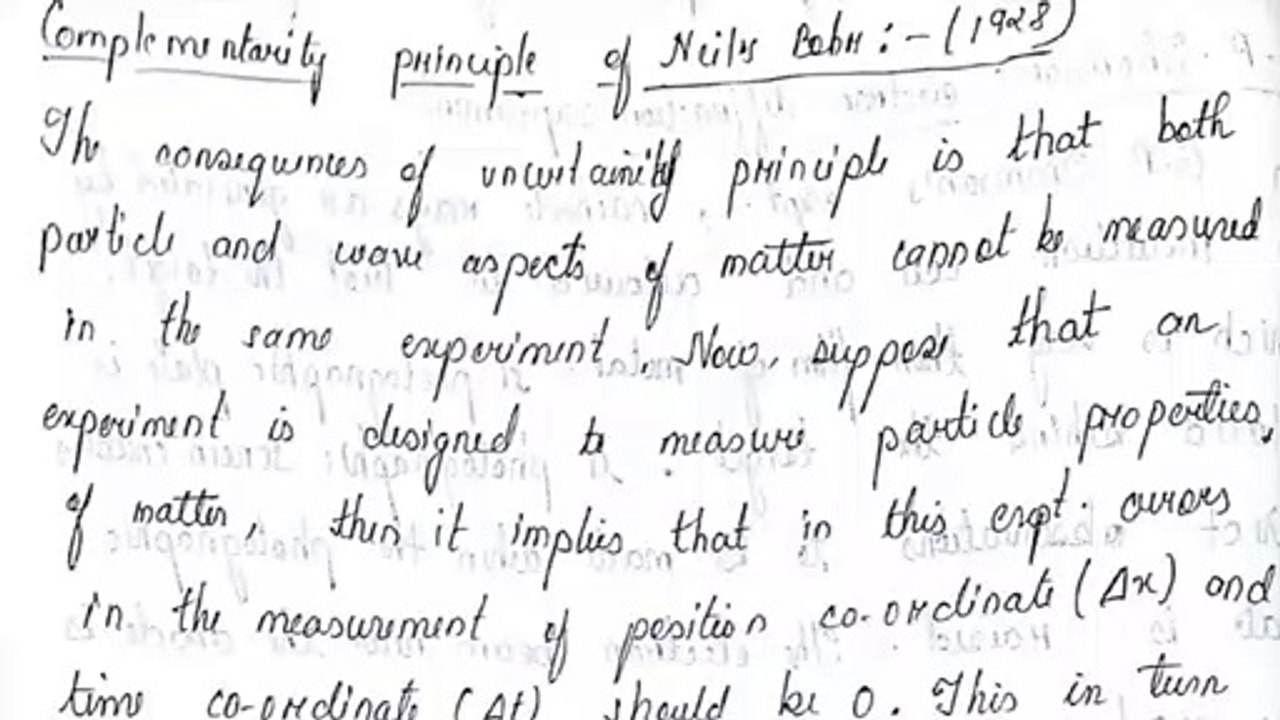 Complementarity principle of Neils Bohr :- (1928)
The consequences of uncertainity principle is that both
particle and wave aspects of matter cannot be measured
in the same experiment. Now, suppose that an
experiment is designed to measure particle properties,
of matter, then it implies that in this expt. errors
in the measurement of position co-ordinate (Δx) and
time co-ordinate (Δt) should be 0. This in turn